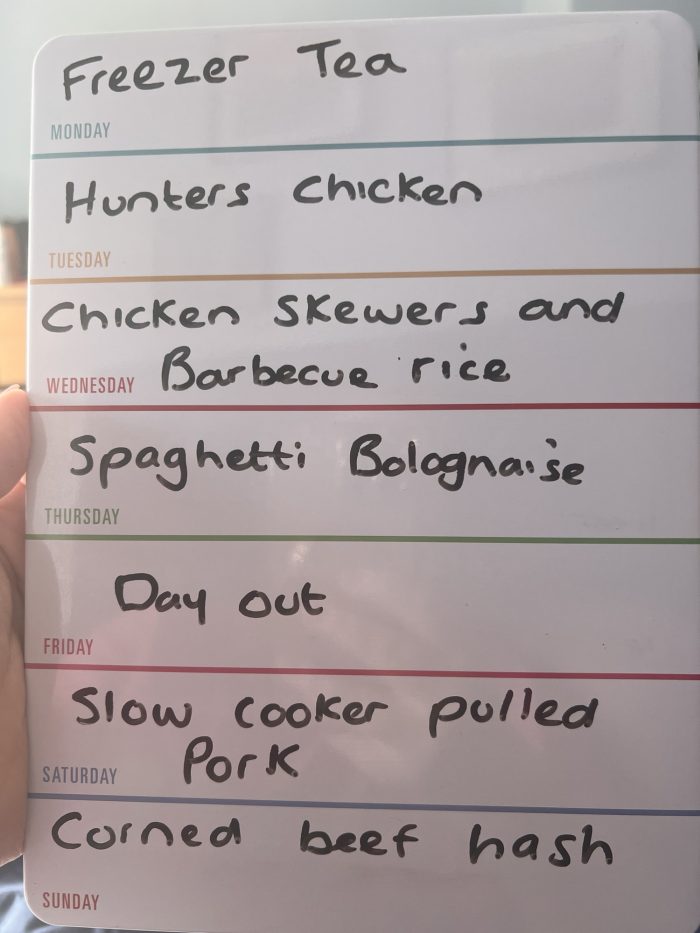 Freezer Tea
MONDAY
Hunters Chicken
TUESDAY
Chicken Skewers and
WEDNESDAY Barbecue rice
Spaghetti Bolognaise
THURSDAY
Day out
FRIDAY
Slow cooker pulled
SATURDAY Pork
Corned beef hash
SUNDAY